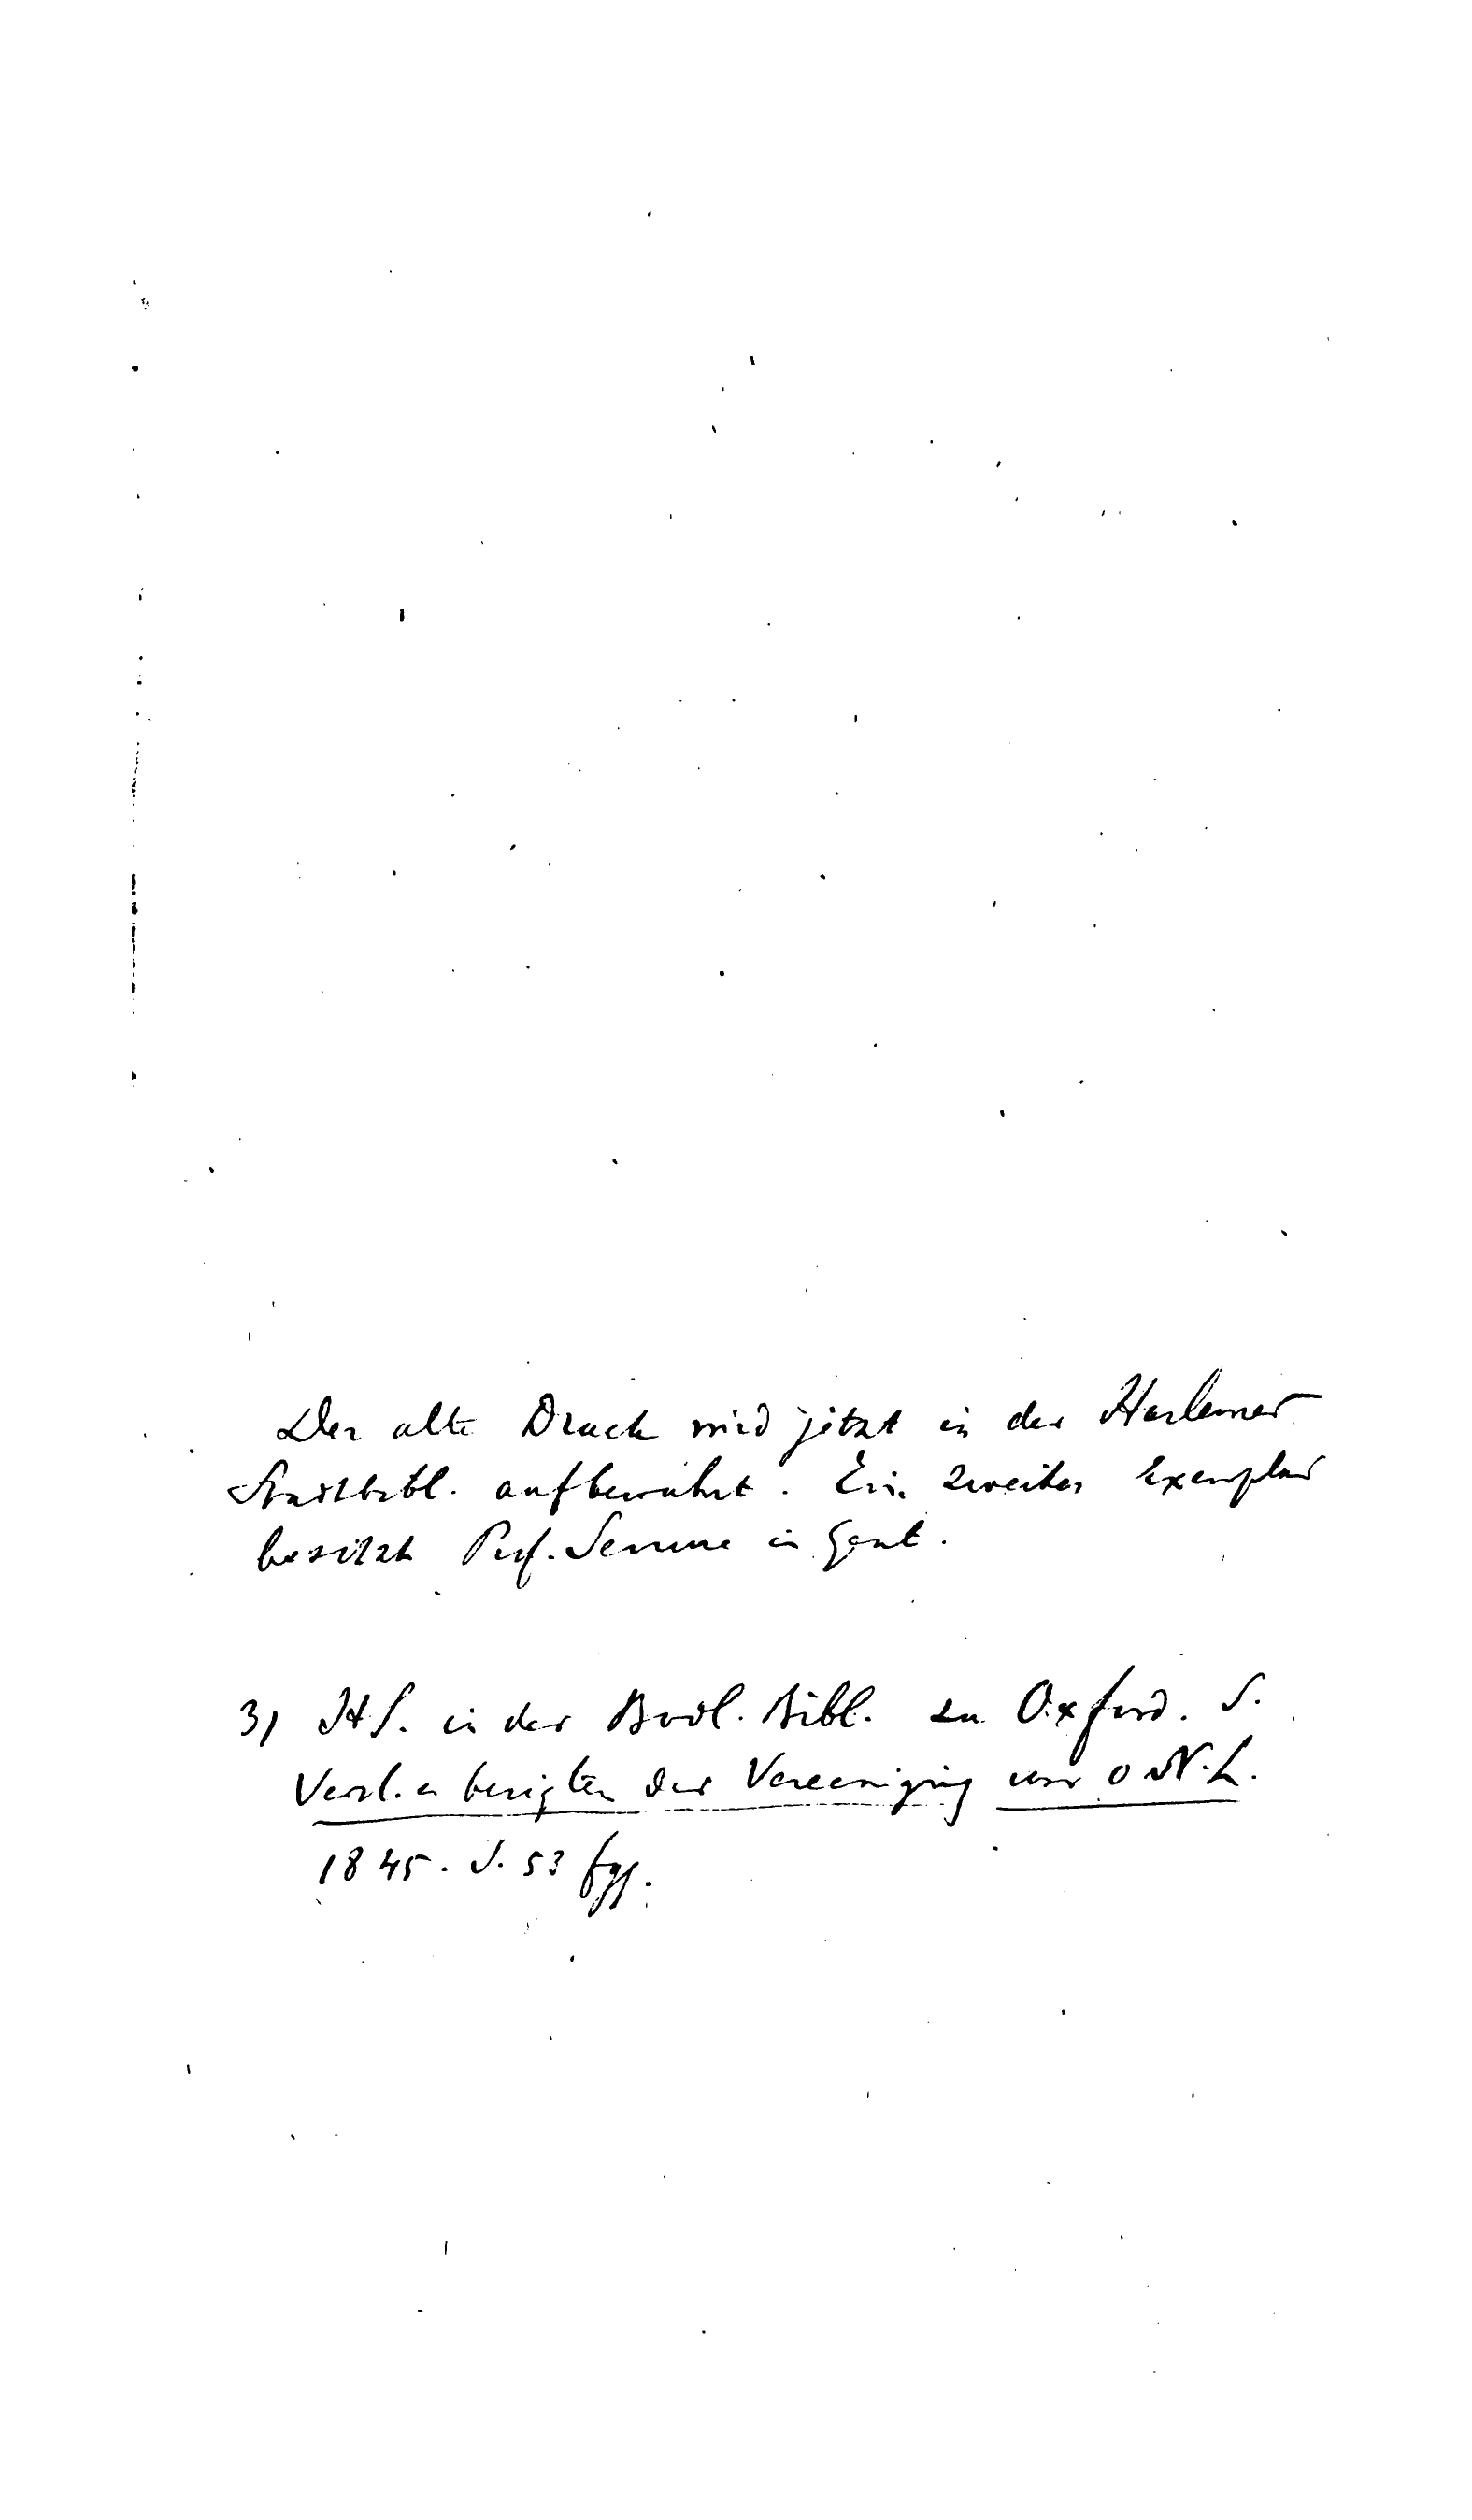 Der alte Druck wird jetzt in der Harlemer
Stadtbibl. aufbewahrt. Ein zweites Exemplar
besitzt Prof. Serrure in Gent.
3) HS. in der Bodl. Bibl. zu Oxford. S.
Versl. en berigten der Vereeniging voor O N. L.
1845. S. 53 fgg.